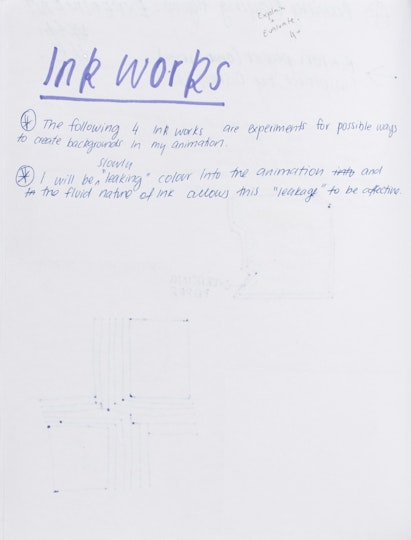 Explain
Evaluate.
Ink works
The following 4 ink works are experiments for possible ways
to create backgrounds in my animation.
slowly
I will be ^ "leaking" colour into the animation into and
the fluid nature of ink allows this "leakage" to be effective.